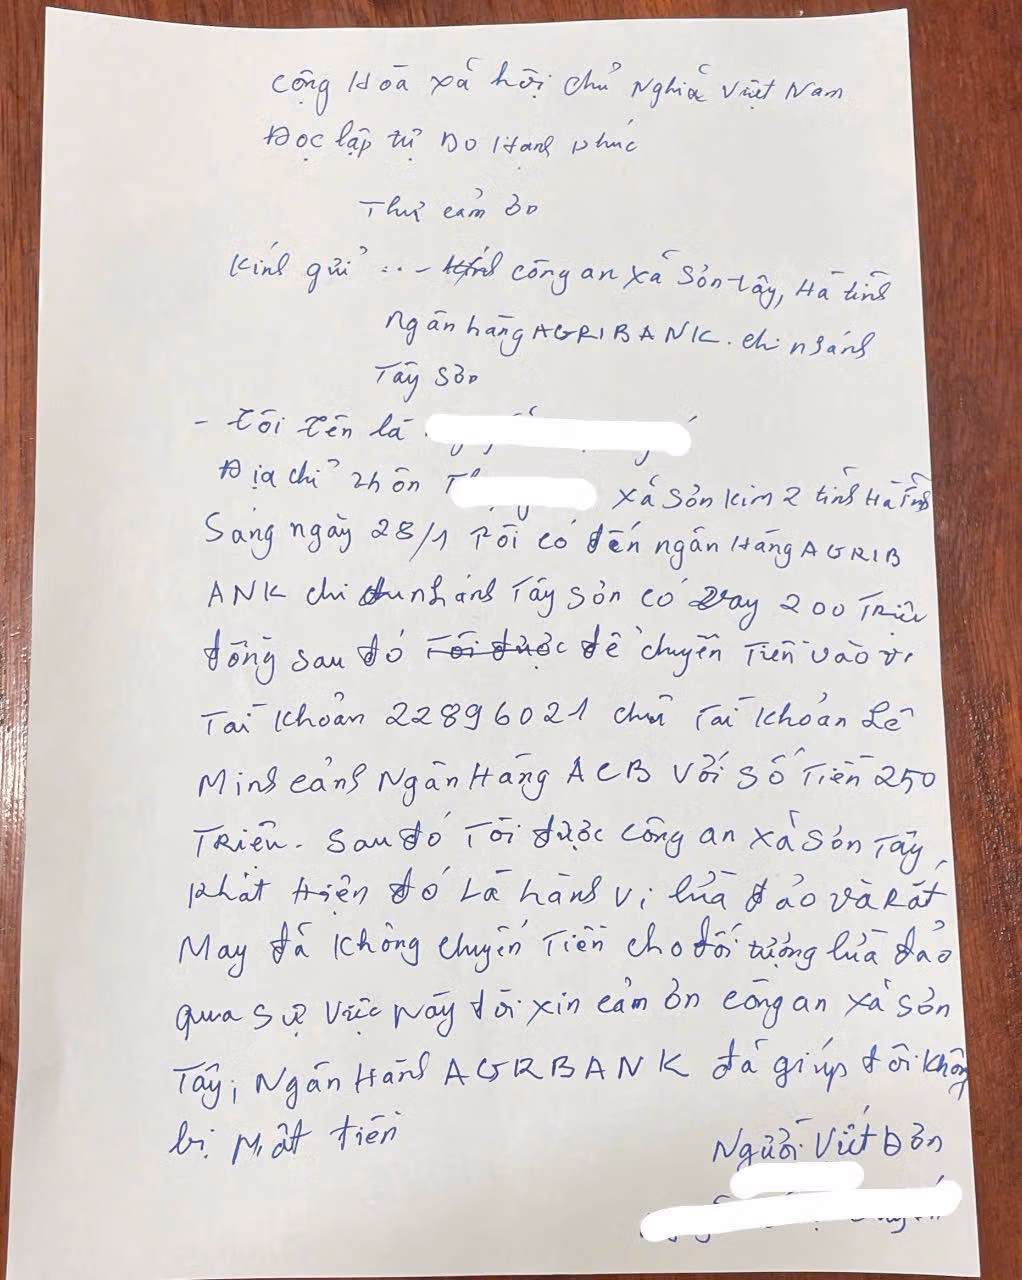 Cộng Hòa xã hội chủ Nghĩa Việt Nam
Độc lập tự Do Hạnh phúc
Thư cảm ơn
Kính gửi : - công an xã Sơn Tây, Hà tĩnh
Ngân hàng AGRIBANK. chi nhánh
Tây Sơn
- Tôi tên là
Địa chỉ thôn T xã Sơn Kim 2 tỉnh Hà Tĩnh
Sáng ngày 28/1 Tôi có đến ngân Hàng AGRIB
ANK chi nhánh Tây Sơn có vay 200 Triệu
đồng sau đó Tôi được để chuyển Tiền vào
Tài Khoản 22896021 chủ Tài Khoản Lê
Minh cảnh Ngân Hàng ACB Với Số Tiền 250
Triệu. Sau đó Tôi được công an xã Sơn Tây,
phát Hiện đó Là hành vi lừa đảo và Rất
May đã Không chuyển Tiền cho đối tượng lừa đảo
qua sự việc này tôi xin cảm ơn công an xã Sơn
Tây, Ngân Hàng AGRBANK đã giúp tôi không
bị Mất tiền
Người Viết Đơn